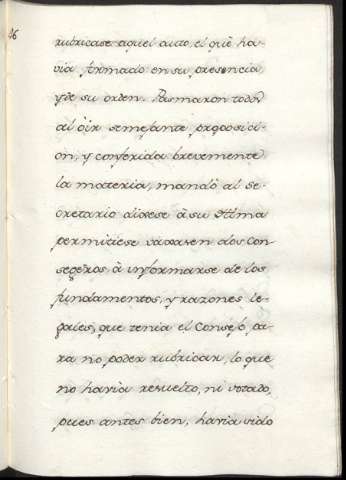 rubricase aquel auto, el que ha-
via formado en su presencia,
y de su orden. Pasmaron todos
al oir semejante proposici-
on, y conferida brevemente
la materia, mandò al Se-
cretario dixese à su Ittma
permitiese vaxasen dos Con-
segeros à informarse de los
fundamentos, y razones le-
gales, que tenia el Consejo pa-
ra no poder rubricar, lo que
no havia resuelto, ni votado,
pues antes bien, havia sido